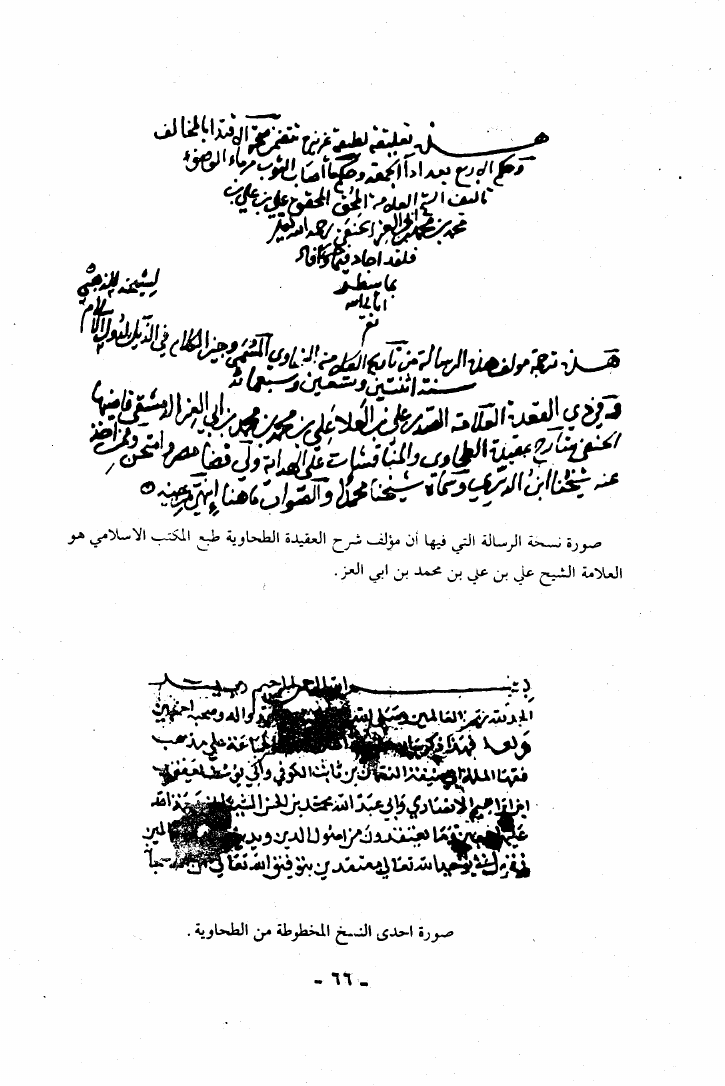 هذه تعليقة لطيفة عزيزة تتضمن صحة الاقتدا بالمخالف
وحكم الاربع بعد ادآ الجمعة وحكم ما أصاب الثوب من ماء الوضوء
تاليف الشيخ العلامة المحقق علي بن علي بن
محمد بن محمد بن ابي العز الحنفي رحمه الله
فلقد اجاد فيها وأفاد
هذه ترجمة مولف هذه الرسالة من تاريخ العلامة السخاوي المسمى وجيز الكلام في الذيل
سنة اثنتين وتسعين وسبعمائة
في ذي القعدة العلامة الصدر علي بن العلا علي بن محمد بن محمد بن ابي العز الدمشقي قاضيها
الحنفي شارح عقيدة الطحاوي والمناقشات على الهداية ولي قضا مصر وامتحن وممن اخذ
عنه شيخنا ابن الديري وسماه شيخنا محمدا والصواب ما هنا انتهى
صورة نسخة الرسالة التي فيها أن مؤلف شرح العقيدة الطحاوية طبع المكتب الاسلامي هو
العلامة الشيح علي بن علي بن محمد بن ابي العز.
بسم الله الرحمن الرحيم
الحمد لله رب العالمين وصلى الله واله وصحبه اجمعين
الجماعة على مذهب
فقها الملة ابي حنيفة النعمان بن ثابت الكوفي وابي يوسف يعقوب
ابن ابراهيم الانصاري وابي عبد الله محمد بن الحسن
وما يعتقدون من اصول الدين
توحيد الله تعالى معتقدين بتوفيق الله تعالى
صورة احدى النسخ المخطوطة من الطحاوية .
- ٦٦ -